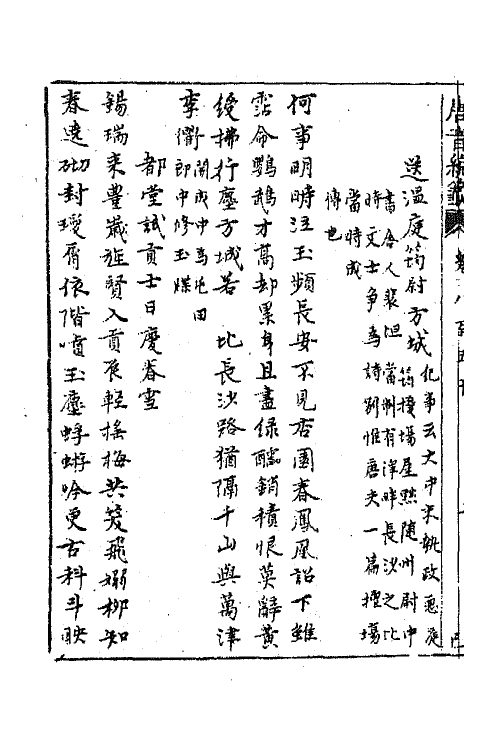 送溫庭筠尉方城
紀事云大中末執政惡庭
筠攪場屋黜隨州尉中
書舍人裴坦當制有澤畔長沙之比
時文士争為詩别惟唐夫一篇擅場
當時成
傳也
何事明時泣玉頻長安不見杏園春鳳凰詔下雖
霑命鸚鵡才高却累身且盡綠醽銷積恨莫辭黃
綬拂行塵方城若比長沙路猶隔千山與萬津
李衢開成中為屯田
郎中修玉牒
都堂試貢士日慶春雪
錫瑞來豐歲旌賢入貢辰輕搖梅共笑飛嫋柳知
春遶砌封瓊屑依階噴玉塵蜉蝣吟更古科斗映